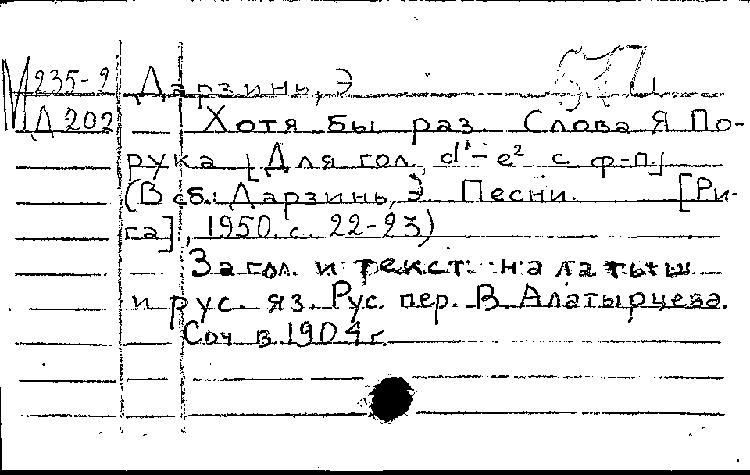 М 235-2 Дарзинь, Э
Д 202 Хотя бы раз. Слова Я По-
рука [Для гол. d¹-e² с ф-п.]
(В сб.: Дарзинь, Э Песни. [Ри-
га], 1950. с. 22-23)
Загол. и текст на латыш
и рус. яз. Рус. пер. В Алатырцева.
Соч в 1904 г.